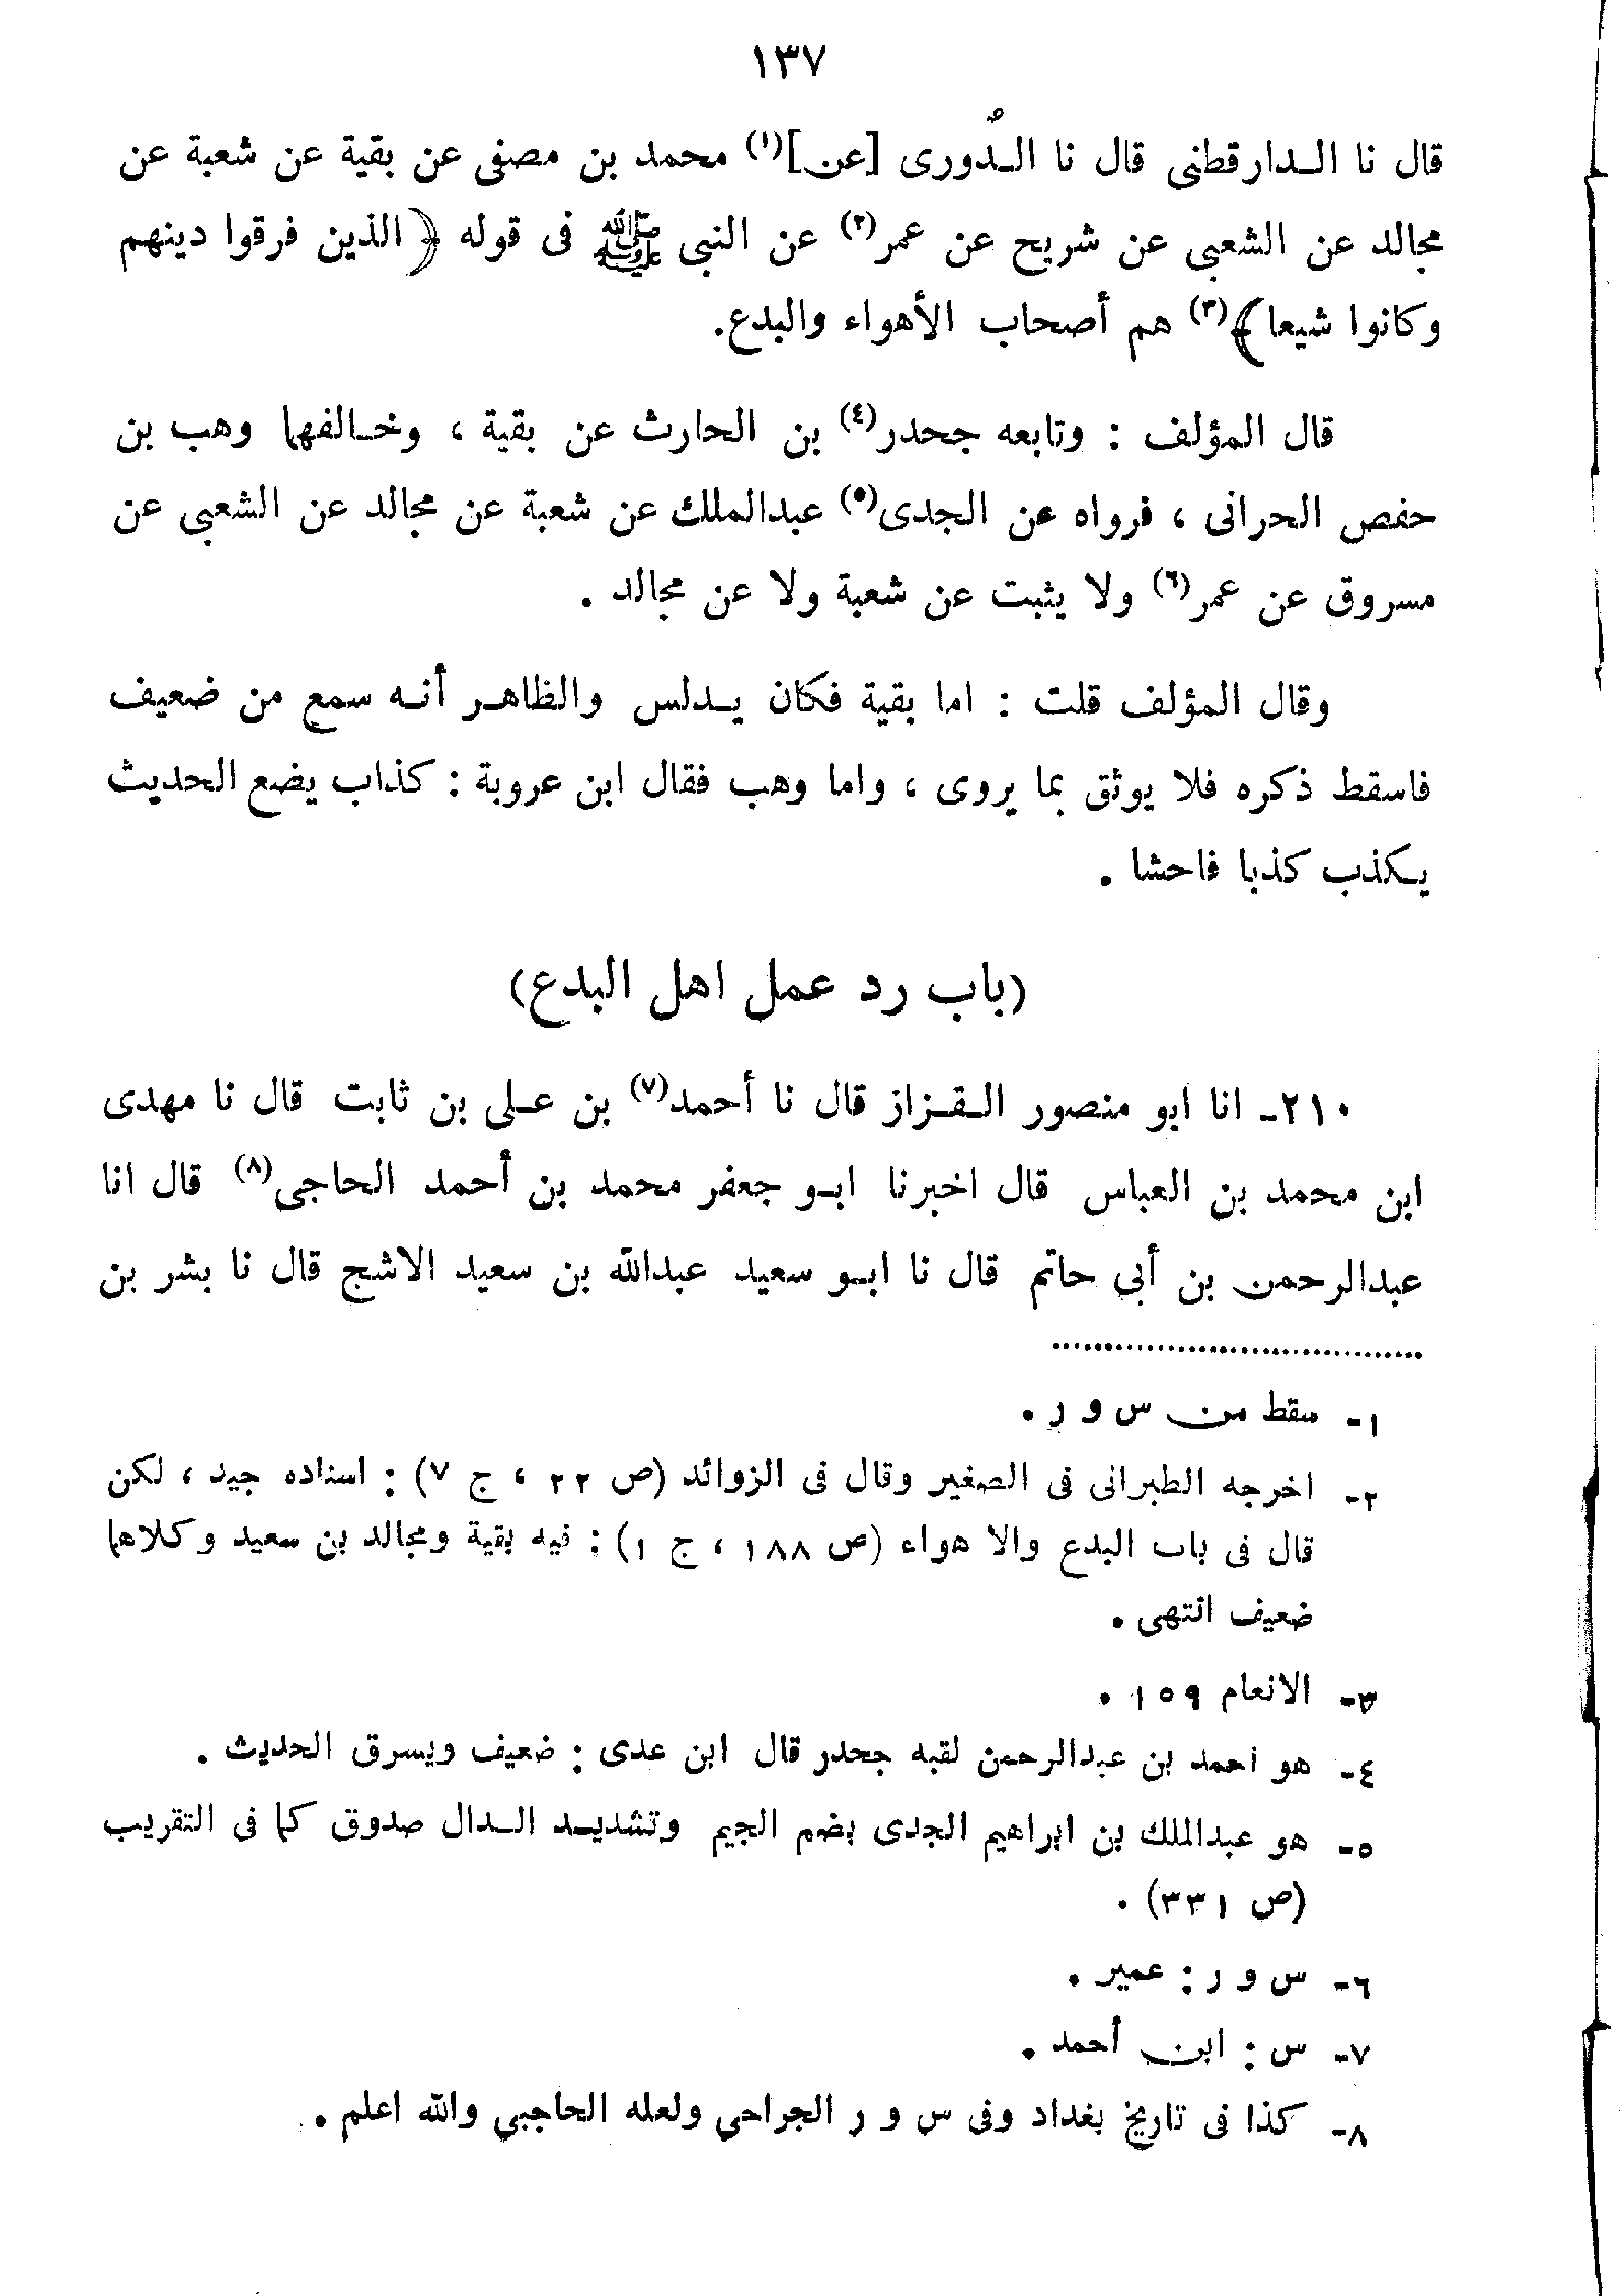 ١٣٧
قال نا الـدارقطنى قال نا الـدُورى [عن](١) محمد بن مصفى عن بقية عن شعبة عن
مجالد عن الشعبى عن شريح عن عمر(٢) عن النبى ﷺ فى قوله ﴿الذين فرقوا دينهم
وكانوا شيعا﴾(٣) هم أصحاب الأهواء والبدع.
قال المؤلف : وتابعه جحدر(٤) بن الحارث عن بقية ، وخـالفهما وهب بن
حفص الحرانى ، فرواه عن الجدى(٥) عبدالملك عن شعبة عن مجالد عن الشعبى عن
مسروق عن عمر(٦) ولا يثبت عن شعبة ولا عن مجالد .
وقال المؤلف قلت : اما بقية فكان يـدلس والظاهـر أنـه سمع من ضعيف
فاسقط ذكره فلا يوثق بما يروى ، واما وهب فقال ابن عروبة : كذاب يضع الحديث
يـكذب كذبا فاحشا .
(باب رد عمل اهل البدع)
٢١٠ـ انا ابو منصور الـقـزاز قال نا أحمد(٧) بن عـلى بن ثابت قال نا مهدى
ابن محمد بن العباس قال اخبرنا ابـو جعفر محمد بن أحمد الحاجى(٨) قال انا
عبدالرحمن بن أبى حاتم قال نا ابـو سعيد عبدالله بن سعيد الاشج قال نا بشر بن
......................................
١ـ سقط من س و ر .
٢ـ اخرجه الطبرانى فى الصغير وقال فى الزوائد (ص ٢٢ ، ج ٧) : اسناده جيد ، لكن
قال فى باب البدع والا هواء (ص ١٨٨ ، ج ١) : فيه بقية ومجالد بن سعيد وكلاهما
ضعيف انتهى .
٣ـ الانعام ١٥٩ .
٤ـ هو احمد بن عبدالرحمن لقبه جحدر قال ابن عدى : ضعيف ويسرق الحديث .
٥ـ هو عبدالملك بن ابراهيم الجدى بضم الجيم وتشديـد الـدال صدوق كما فى التقريب
(ص ٣٣١) .
٦ـ س و ر : عمير .
٧ـ س : ابن أحمد .
٨ـ كذا فى تاريخ بغداد وفى س و ر الجراحي ولعله الحاجبي والله اعلم .